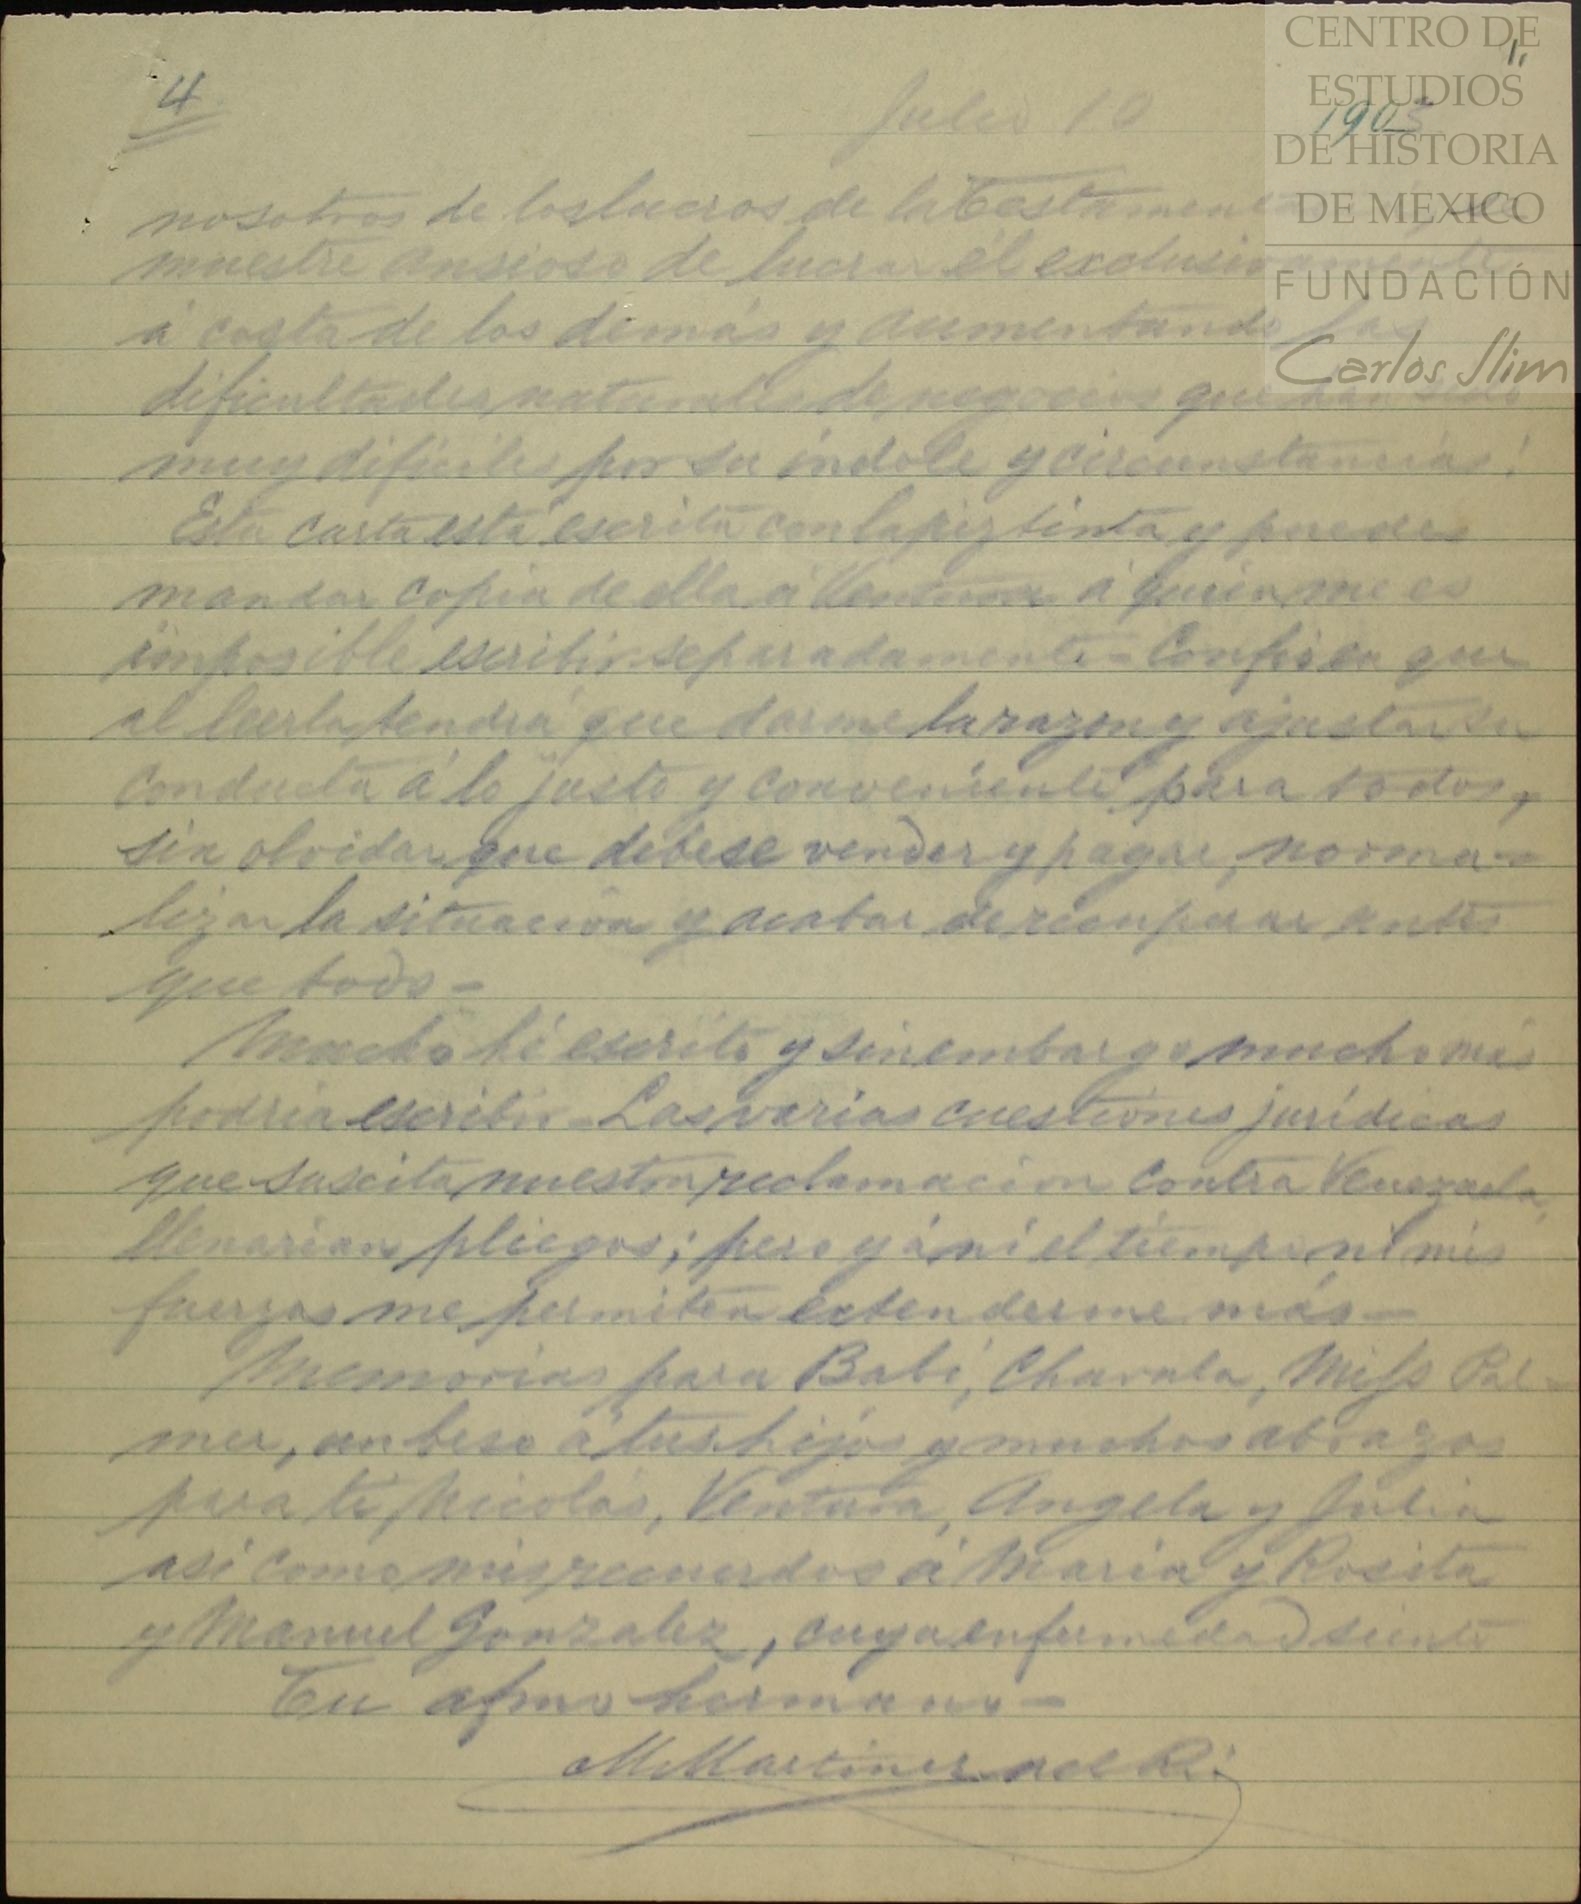 CENTRO DE
ESTUDIOS
DE HISTORIA
DE MEXICO
FUNDACIÓN
Carlos Slim
4
Julio 10
1903
nosotros de los lucros de la Testamentaria, se
muestre ansioso de lucrar él exclusivamente
á costa de los demás y aumentando las
dificultades naturales de negocios que han sido
muy dificiles por su indole y circunstancias!
Esta carta está escrita con lapiz tinta y puedes
mandar copia de ella á Ventura á quien me es
imposible escribir separadamente - Confio en que
al leerla tendrá que darme la razon y ajustar su
conducta á lo justo y conveniente para todos,
sin olvidar que debese vender y pagar, norma-
lizar la situacion y acabar de antes
que todo -
Mucho hé escrito y sin embargo mucho más
podria escribir - Las varias cuestiones jurídicas
que suscita nuestra reclamacion contra Venezuela,
llenarian pliegos; pero yá ni el tiempo ni mis
fuerzas me permiten extenderme más -
Memorias para Babi, Chavala, Miss Pal-
mer, un beso á tus hijos y muchos abrazos
para ti, Nicolás, Ventura, Angela y Julia
asi como mis recuerdos á Maria y Rosita
y Manuel Gonzalez, cuya enfermedad siento
Tu afmo hermano -
M Martinez del Rio